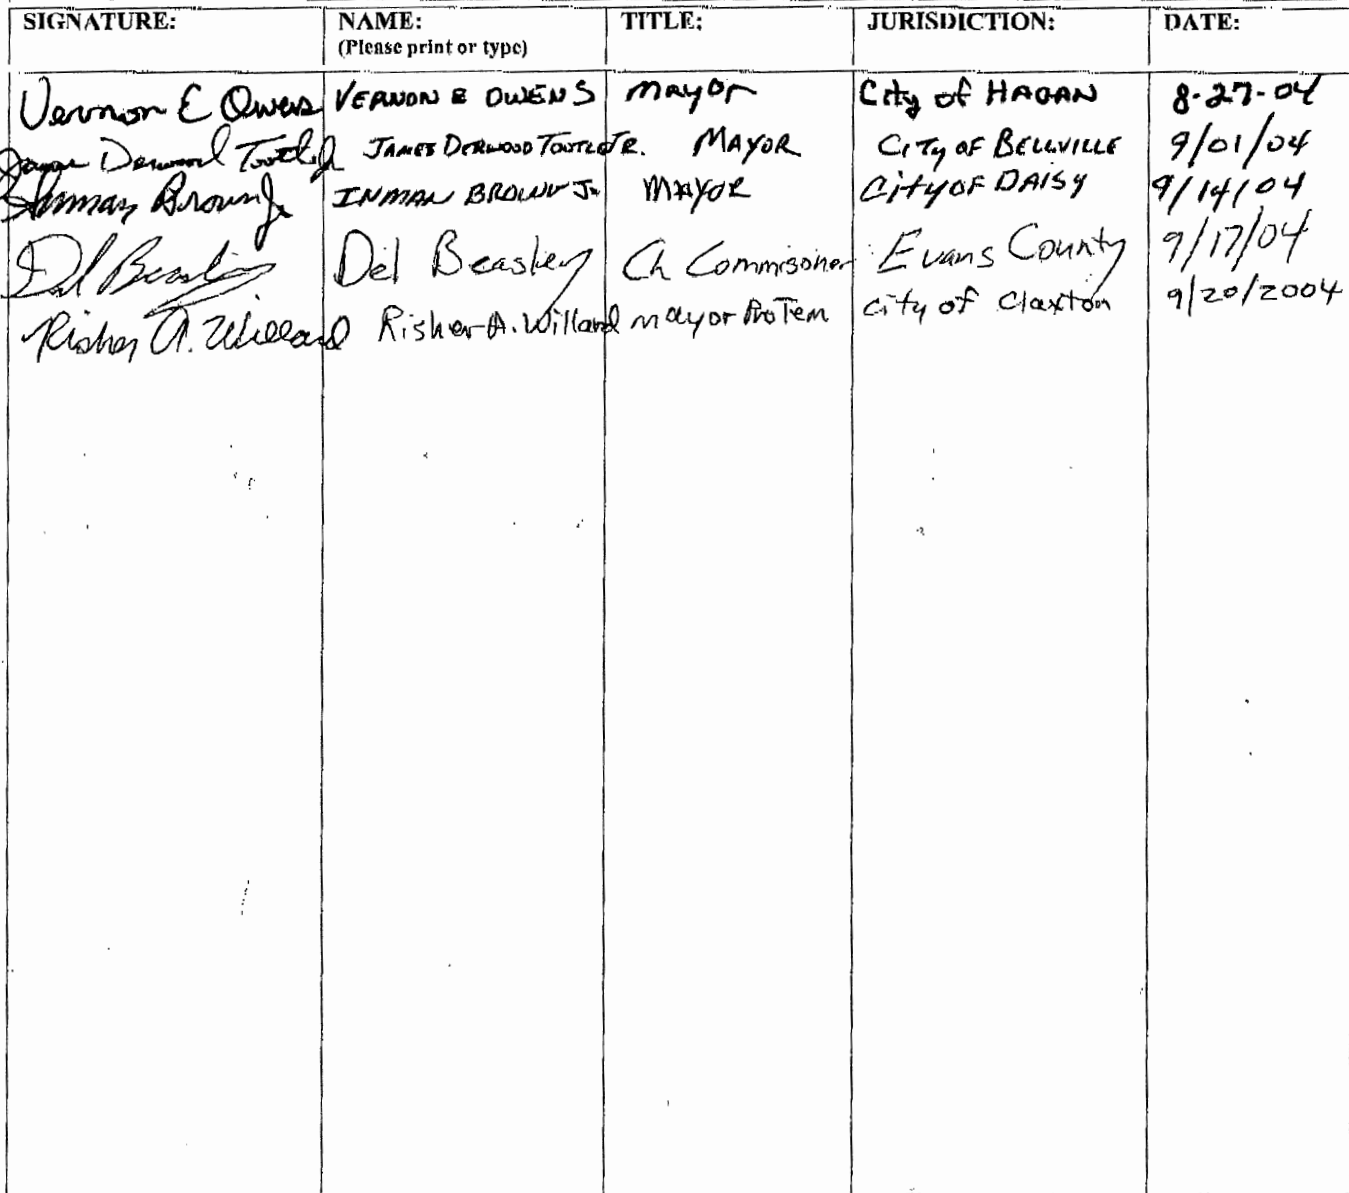 SIGNATURE: NAME: TITLE: JURISDICTION: DATE:
(Please print or type)
Vernon E Owens VERNON E OWENS mayor City of HAGAN 8-27-04
James Derwood Tootle Jr JAMES DERWOOD TOOTLE JR. MAYOR CITY OF BELLVILLE 9/01/04
Inman Brown Jr INMAN BROWN Jr MAYOR CITY OF DAISY 9/14/04
Del Beasley Del Beasley Ch Commisoner Evans County 9/17/04
Risher A. Willard Risher A. Willard mayor ProTem City of Claxton 9/20/2004